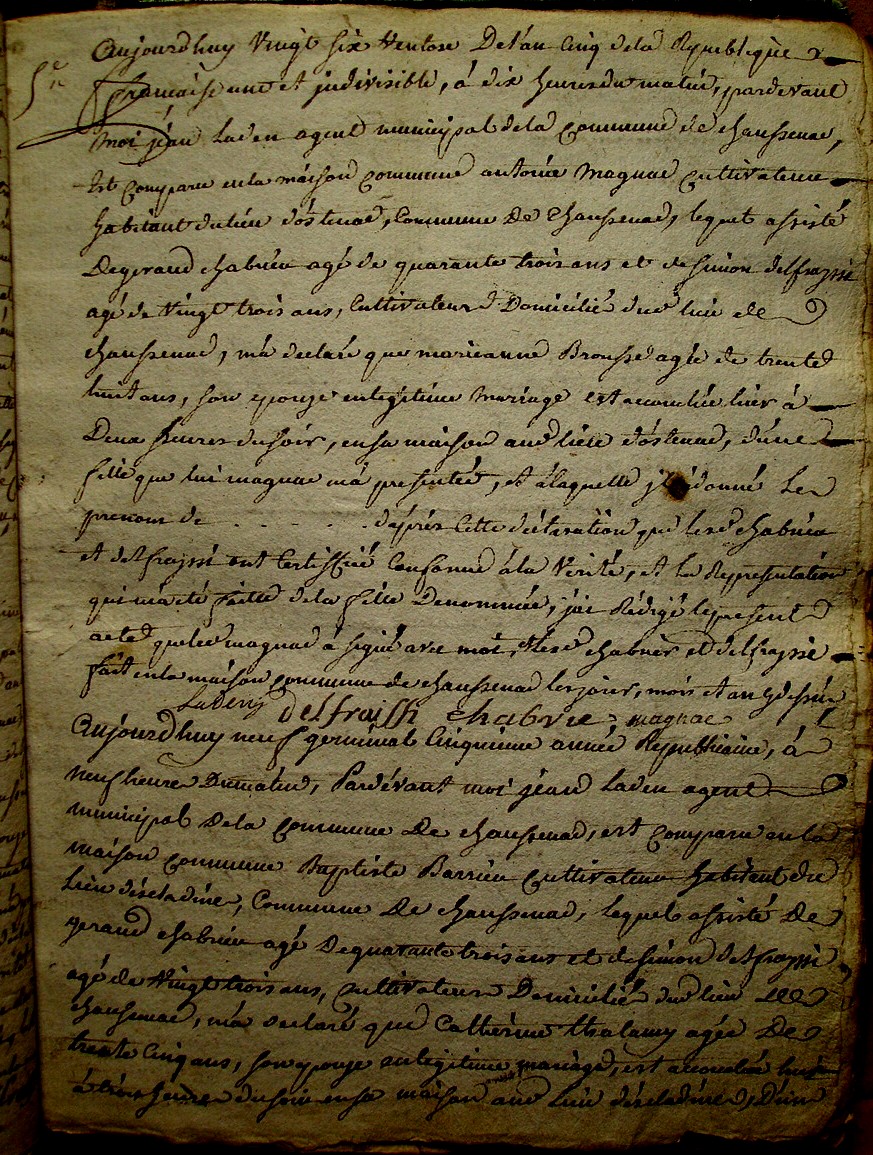 aujourdhuy vingt six ventose De l'an cinq de la Republique
francaise une et indivisible, á dix heures du matin, pardevant
moi jean Laden agent municipal de la commune de chaussenac,
Est comparu en la maison commune antoine magnac cultivateur
habitant du lieu d'ostenac, commune De chaussenac, lequel assisté
De geraud chabrier agé de quarante trois ans et de simon delfraysse
agé de vingt trois ans, cultivateurs Domiciliés du lieu de
chaussenac, m'a declaré que marianne Brousse agée de trente
huit ans, son epouse en legitime mariage est acouchée hier à
Deux heures du soir, en sa maison aud lieu d'ostenac, d'une
fille que lui magnac m'a presentée, et à laquelle j'ai donné le
prenom de - - - - - d'après cette déclaration que lesd chabrier
et delfrayssi ont certiffié conforme á la verité, et la Representation
qui m'a été faitte de la fille Denommée, j'ai Rédigé le present
acte que led magnac á signé avec moi, et lesd chabrier et delfrayssie
fait en la maison commune de chaussenac les jour, mois et an ci dessus
Laden delfraissi chabrie magnac
Aujourdhuy neuf germinal cinquieme année Republicaine, á
neuf heures Dumatin, Pardévant moi jean Laden agent
municipal De la commune De chaussenac, est comparu en la
maison commune Baptiste Barrieu cultivateur habitant du
lieu d'escladine, commune De chaussenac, lequel assisté De
geraud chabrier agé De quarante trois ans et de simon delfrayssi
agé de vingt trois ans, cultivateurs Domiciliés dud lieu de
chaussenac, m'a declaré que catherine thalamy agée De
trente cinq ans, son epouse en legitime mariage, est acouchée hier
á trois heures du soir en sa maison aud lieu d'escladine, D'un